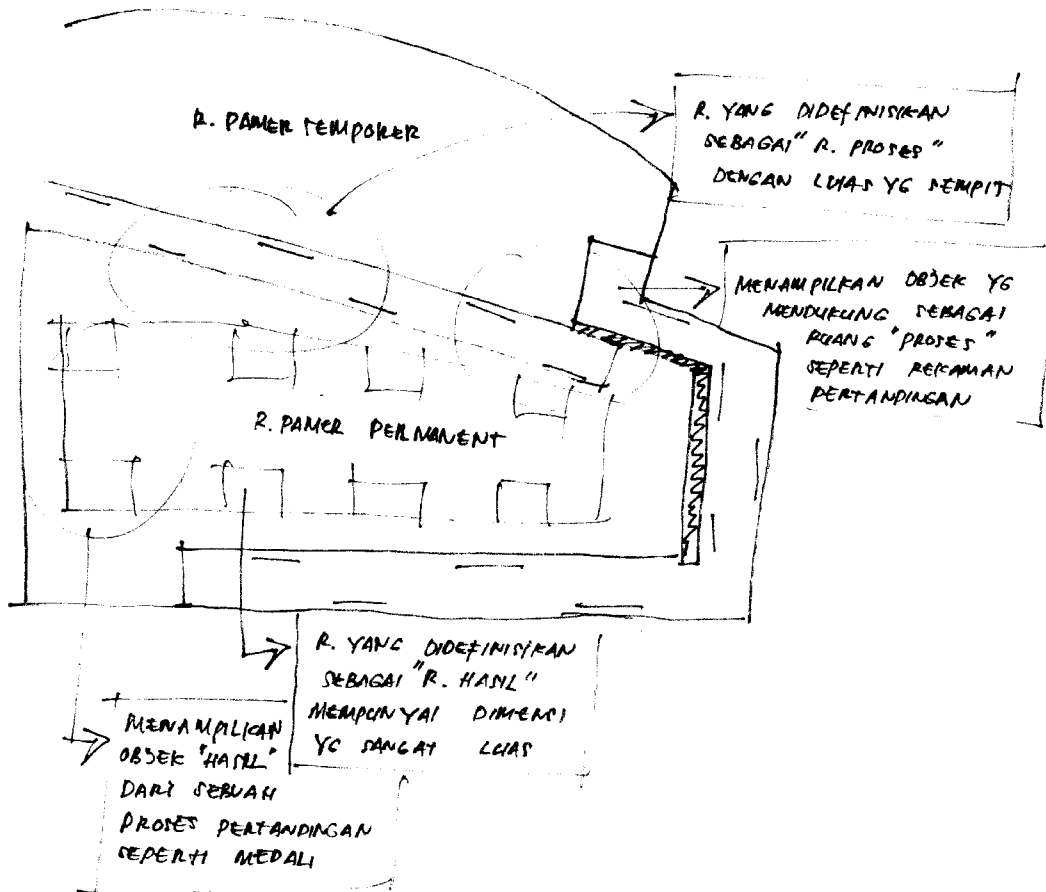 R. PAMER TEMPORER
R. YANG DIDEFINISIKAN
SEBAGAI "R. PROSES"
DENGAN LUAS YG SEMPIT
MENAMPILKAN OBJEK YG
MENDUKUNG SEBAGAI
RUANG "PROSES"
SEPERTI REKAMAN
PERTANDINGAN
R. PAMER PERMANENT
R. YANG DIDEFINISIKAN
SEBAGAI "R. HASIL"
MEMPUNYAI DIMENSI
YG SANGAT LUAS
MENAMPILKAN
OBJEK "HASIL"
DARI SEBUAH
PROSES PERTANDINGAN
SEPERTI MEDALI